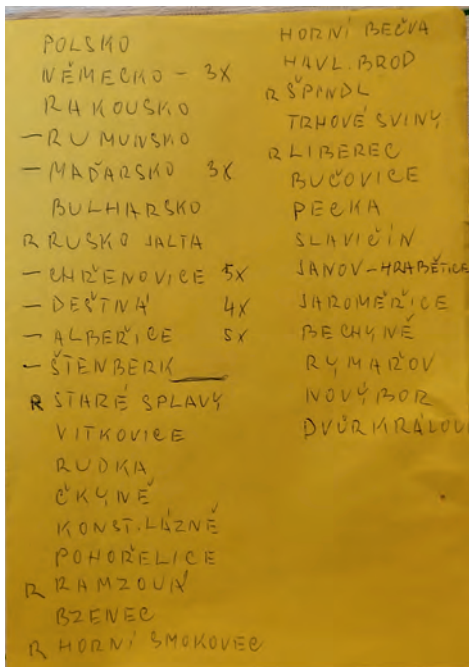 POLSKO
NĚMECKO - 3X
RAKOUSKO
- RUMUNSKO
- MAĎARSKO 3X
BULHARSKO
R RUSKO JALTA
- CHŘENOVICE 5X
- DEŠTNÁ 4X
- ALBEŘICE 5X
- ŠTENBERK
R STARÉ SPLAVY
VITKOVICE
RUDKA
ČKYNĚ
KONST. LÁZNĚ
POHOŘELICE
R RAMZOVÁ
BZENEC
R HORNÍ SMOKOVEC
HORNÍ BEČVA
HAVL. BROD
R ŠPINDL
TRHOVÉ SVINY
R LIBEREC
BUČOVICE
PECKA
SLAVIČÍN
JANOV - HRABĚTICE
JAROMĚŘICE
BECHYNĚ
RÝMAŘOV
NOVÝ BOR
DVŮR KRÁLOV